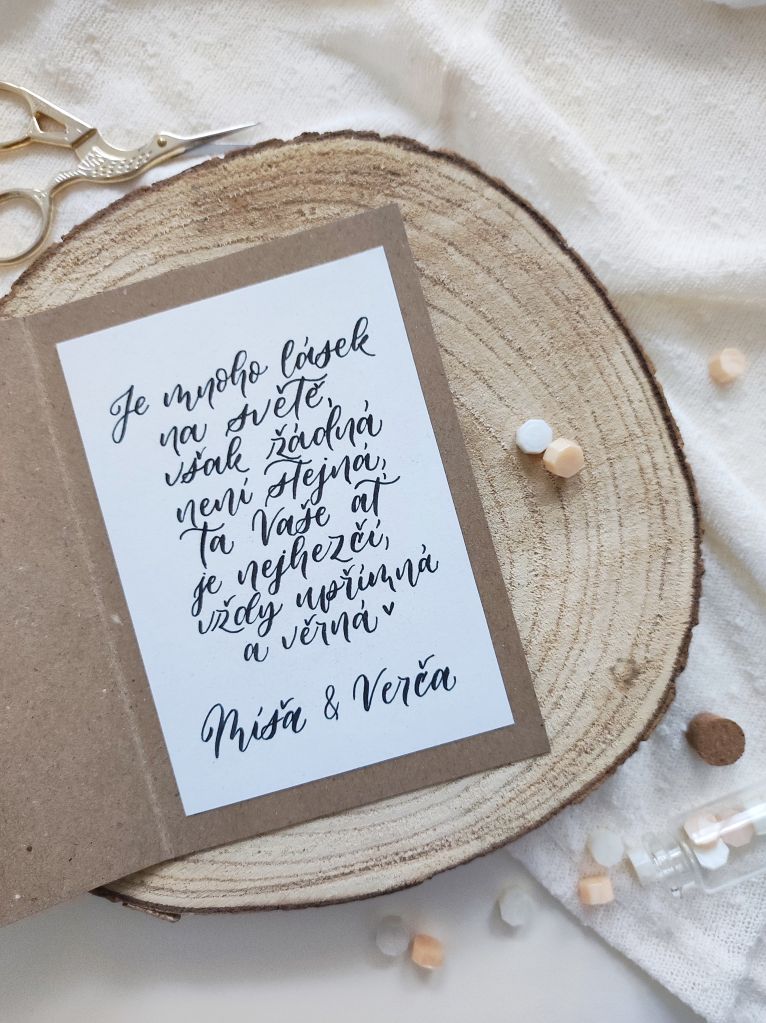 Je mnoho lásek
na světě,
však žádná
není stejná,
ta Vaše ať
je nejhezčí,
vždy upřímná
a věrná ♥
Míša & Verča